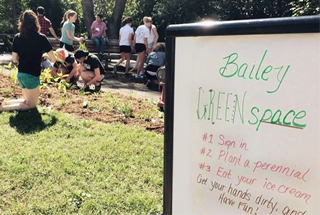 Bailey
GREEN space
#1 Sign in
#2 Plant a perennial
#3 Eat your ice cream
Get your hands dirty, and
Have Fun!